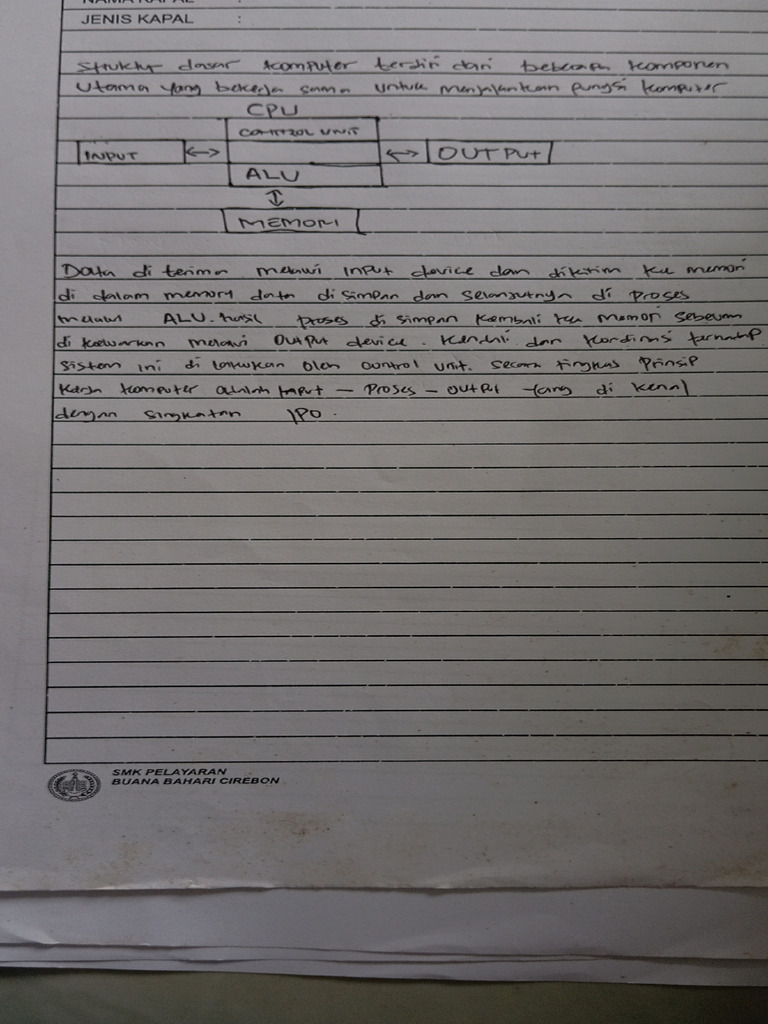 JENIS KAPAL :
Struktur dasar komputer terdiri dari beberapa komponen
Utama yang bekerja sama untuk menjalankan pungsi komputer
CPU
CONTROL UNIT
INPUT
OUTPUT
ALU
MEMORI
Data di terima melawi input device dan dikirim ke memori
di dalam memory data di simpan dan selanjutnya di proses
melawi ALU. hasil proses di simpan kembali ke memori sebelum
di keluarkan melawi OUTPUT device. Kendali dan kordinasi terhadap
sistem ini di lakukan oleh control unit. secara ringkas Prinsip
kerja komputer adalah Input - Proses - OUTPUt yang di kenal
dengan singkatan IPO.
SMK PELAYARAN
BUANA BAHARI CIREBON